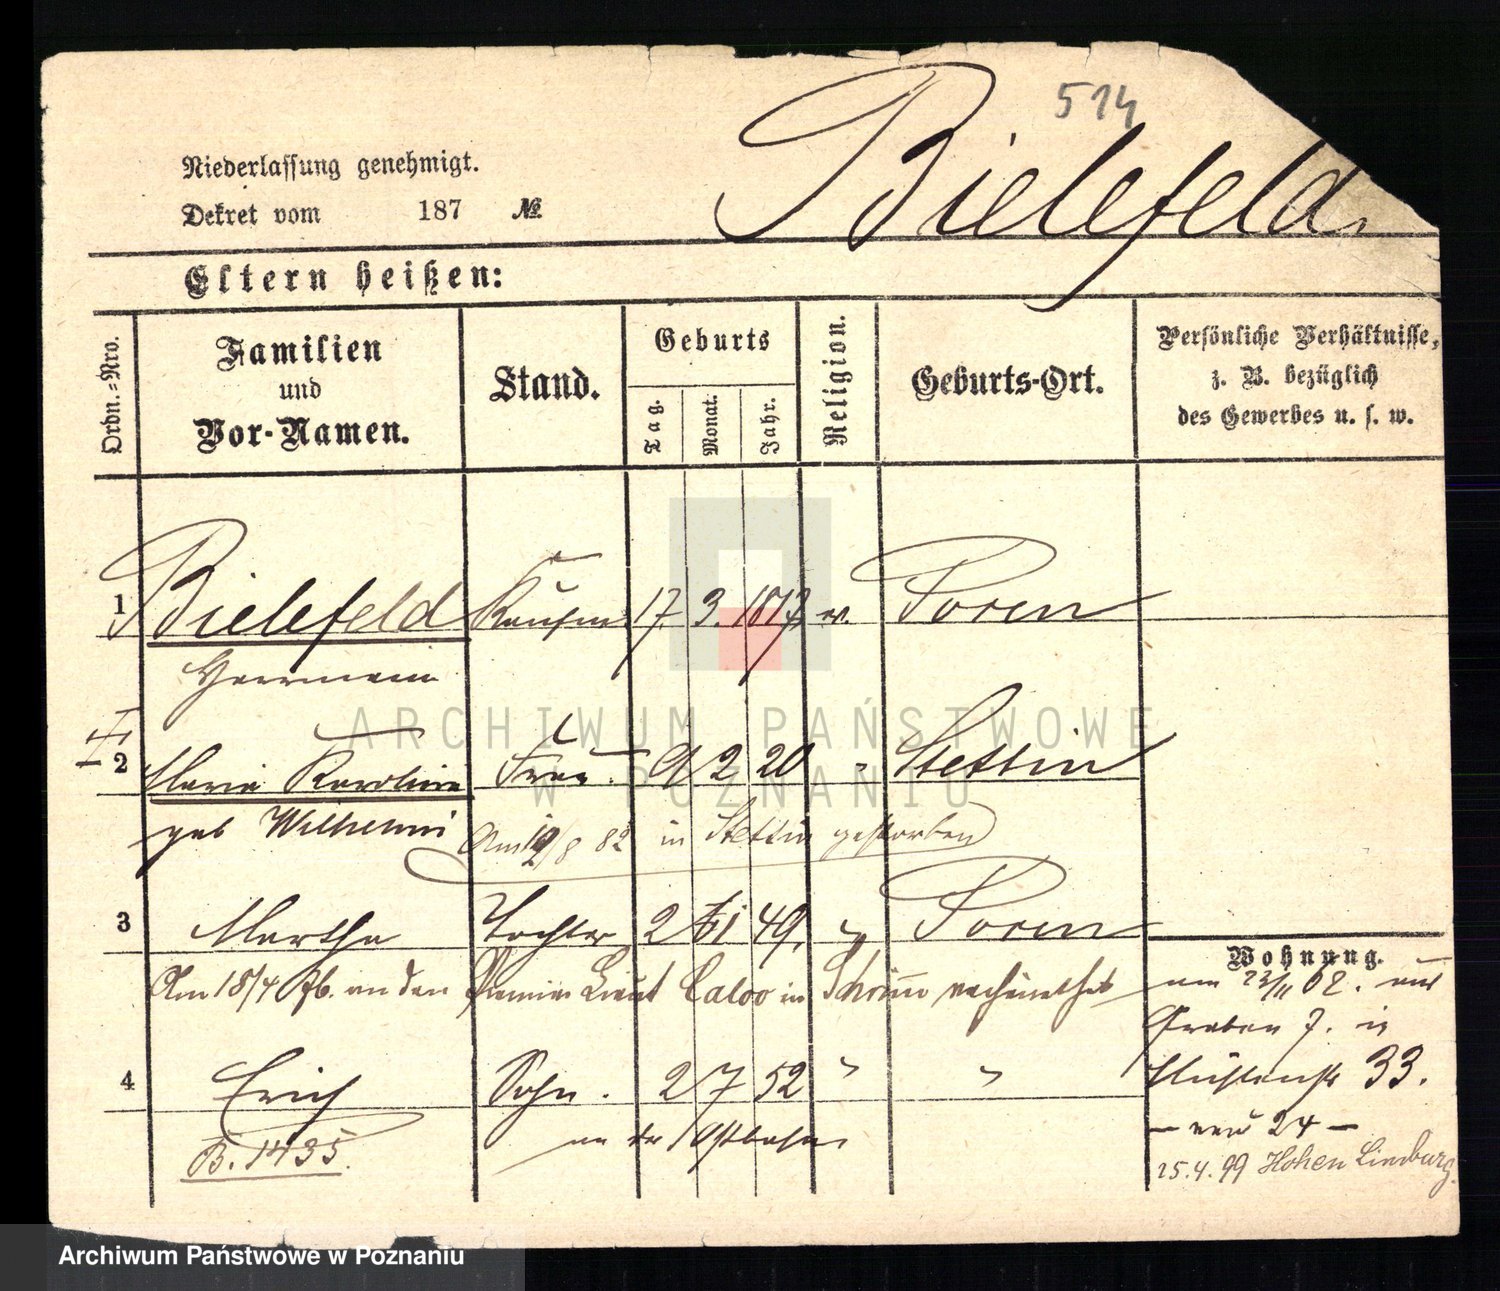 514
Bielefeld
Niederlassung genehmigt.
Dekret vom 187 №
Eltern heißen:
Ordn.=Nro.
Familien
und
Vor-Namen.
Stand.
Geburts
Tag.
Monat.
Jahr.
Religion.
Geburts-Ort.
Persönliche Verhältnisse,
z. B. bezüglich
des Gewerbes u. s. w.
1 Bielefeld Kaufm 17. 3. 1817 ev. Posen
Herrmann
2 Maria Karoline Frau. 9 2 20 " Stettin
geb Wilhelmi Am 19/8 82 in Stettin gestorben
3 Martha Tochter 2 49. " Posen
Am 18/4 76. an den Premier Lieut in verheirathet
Wohnung.
am 23/11 62. aus
Graben 7. in
33.
4 Erich Sohn. 2 7 52 " "
an der Ostbahn
B. 1435.
- neu 24 -
25.4.99 Hohen Limburg.
ARCHIWUM PAŃSTWOWE
W POZNANIU
Archiwum Państwowe w Poznaniu